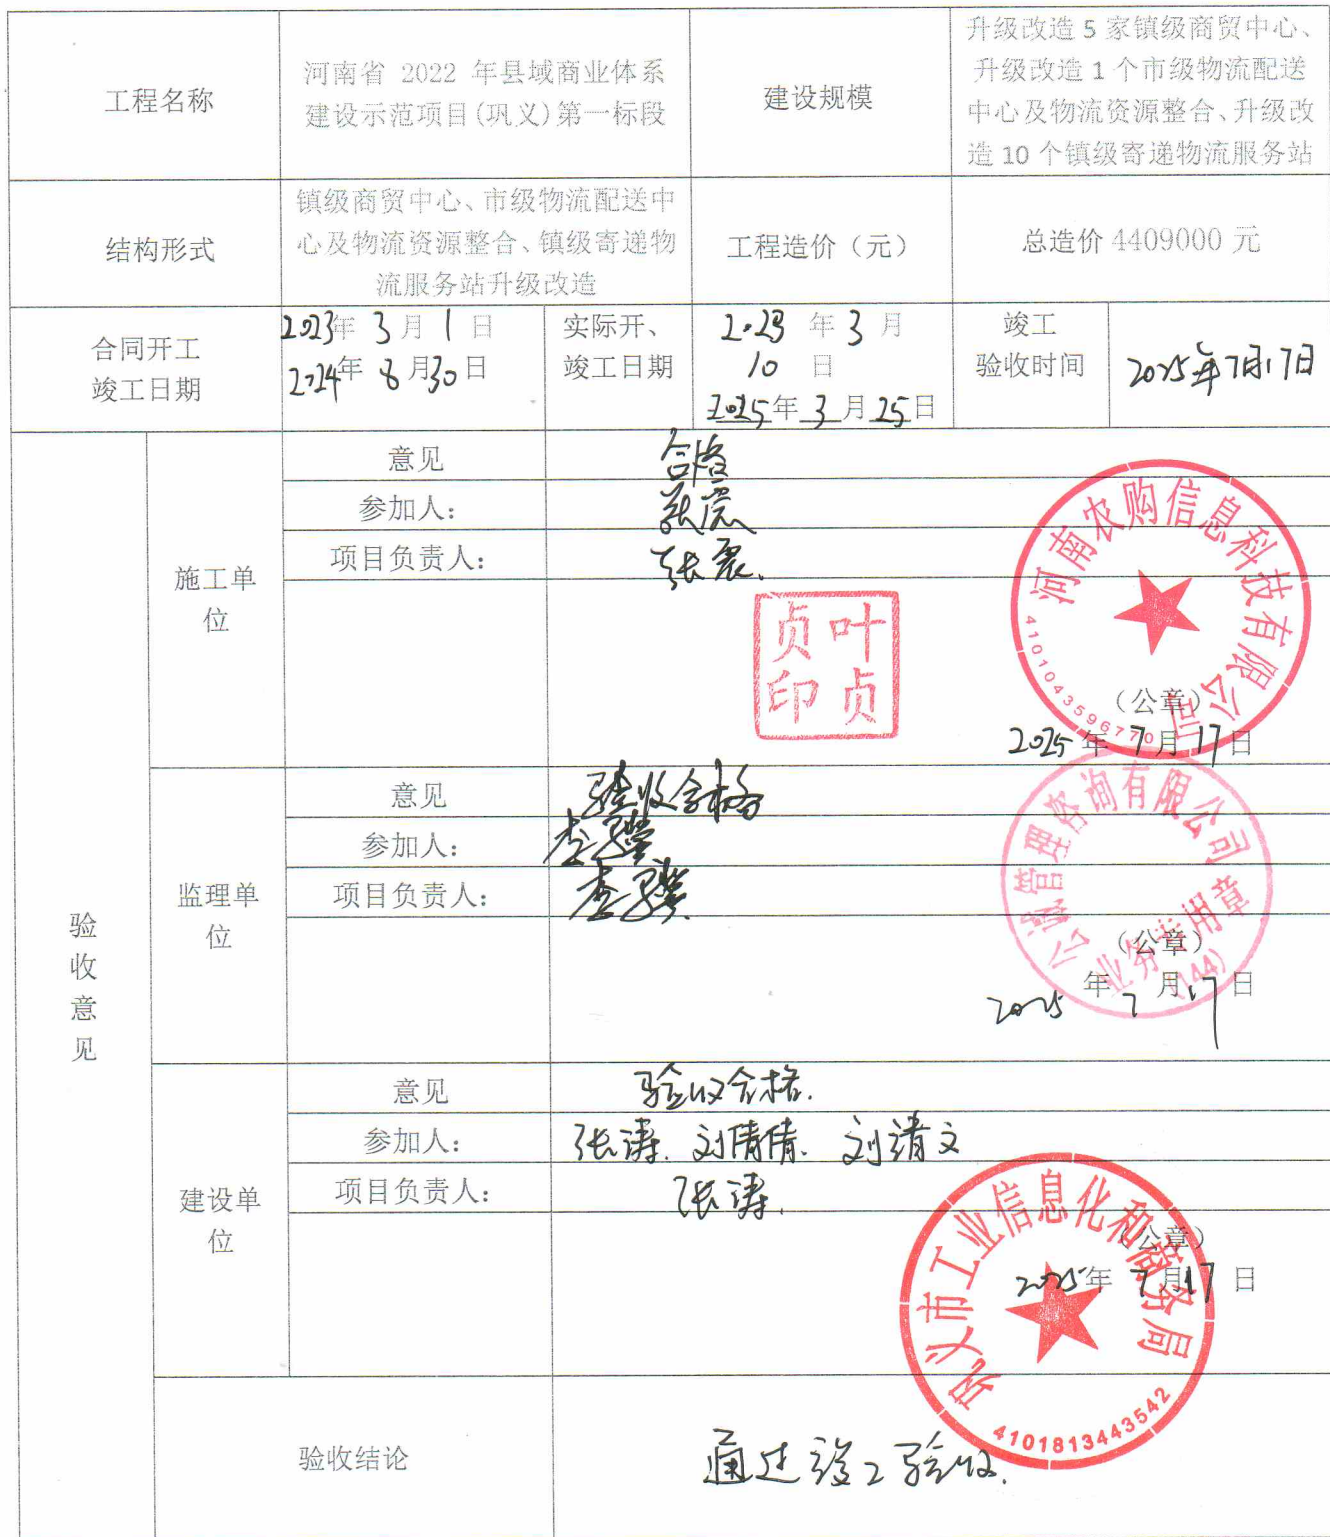 工程名称
河南省 2022 年县域商业体系
建设示范项目(巩义)第一标段
建设规模
升级改造 5 家镇级商贸中心、
升级改造 1 个市级物流配送
中心及物流资源整合、升级改
造 10 个镇级寄递物流服务站
结构形式
镇级商贸中心、市级物流配送中
心及物流资源整合、镇级寄递物
流服务站升级改造
工程造价（元）
总造价 4409000 元
合同开工
竣工日期
2023年 3 月 1 日
2024年 8 月30日
实际开、
竣工日期
2023 年 3 月
10 日
2025年 3 月 25日
竣工
验收时间
2025年7月17日
验收意见
施工单
位
意见
合格
参加人：
张震
项目负责人：
张震.
贞叶
印贞
河南农购信息科技有限公司
4101043596770
（公章）
2025 年 7 月 17 日
监理单
位
意见
验收合格
参加人：
项目负责人：
公诚管理咨询有限公司
业务专用章
(144)
（公章）
2025 年 7 月 17 日
建设单
位
意见
验收合格.
参加人：
张涛. 刘倩倩. 刘清文
项目负责人：
张涛.
巩义市工业信息化和商务局
4101813443542
（公章）
2025年 7月17 日
验收结论
通过竣工验收.